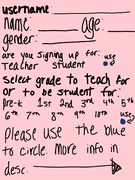 username:
name: age:
gender:
are you signing up for: use
Teacher student
Select grade to teach for
or to be student for:
pre-k 1st 2nd 3rd 4th 5th
6th 7th 8th 9th 18th use
Please use the blue
to circle. More info in
desc.